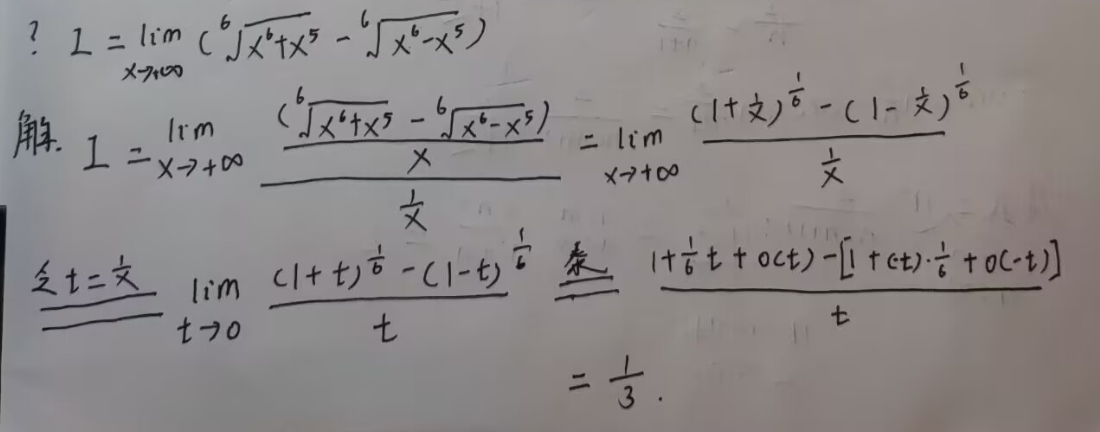 ? I = lim_{x→+∞} (⁶√(x⁶+x⁵) - ⁶√(x⁶-x⁵))
解. I = lim_{x→+∞} ((⁶√(x⁶+x⁵) - ⁶√(x⁶-x⁵))/x)/(1/x) = lim_{x→+∞} ((1+1/x)^{1/6} - (1-1/x)^{1/6})/(1/x)
令t=1/x lim_{t→0} ((1+t)^{1/6} - (1-t)^{1/6})/t 泰 (1+1/6 t+o(t)-[1+(-t)·1/6+o(-t)])/t
= 1/3.